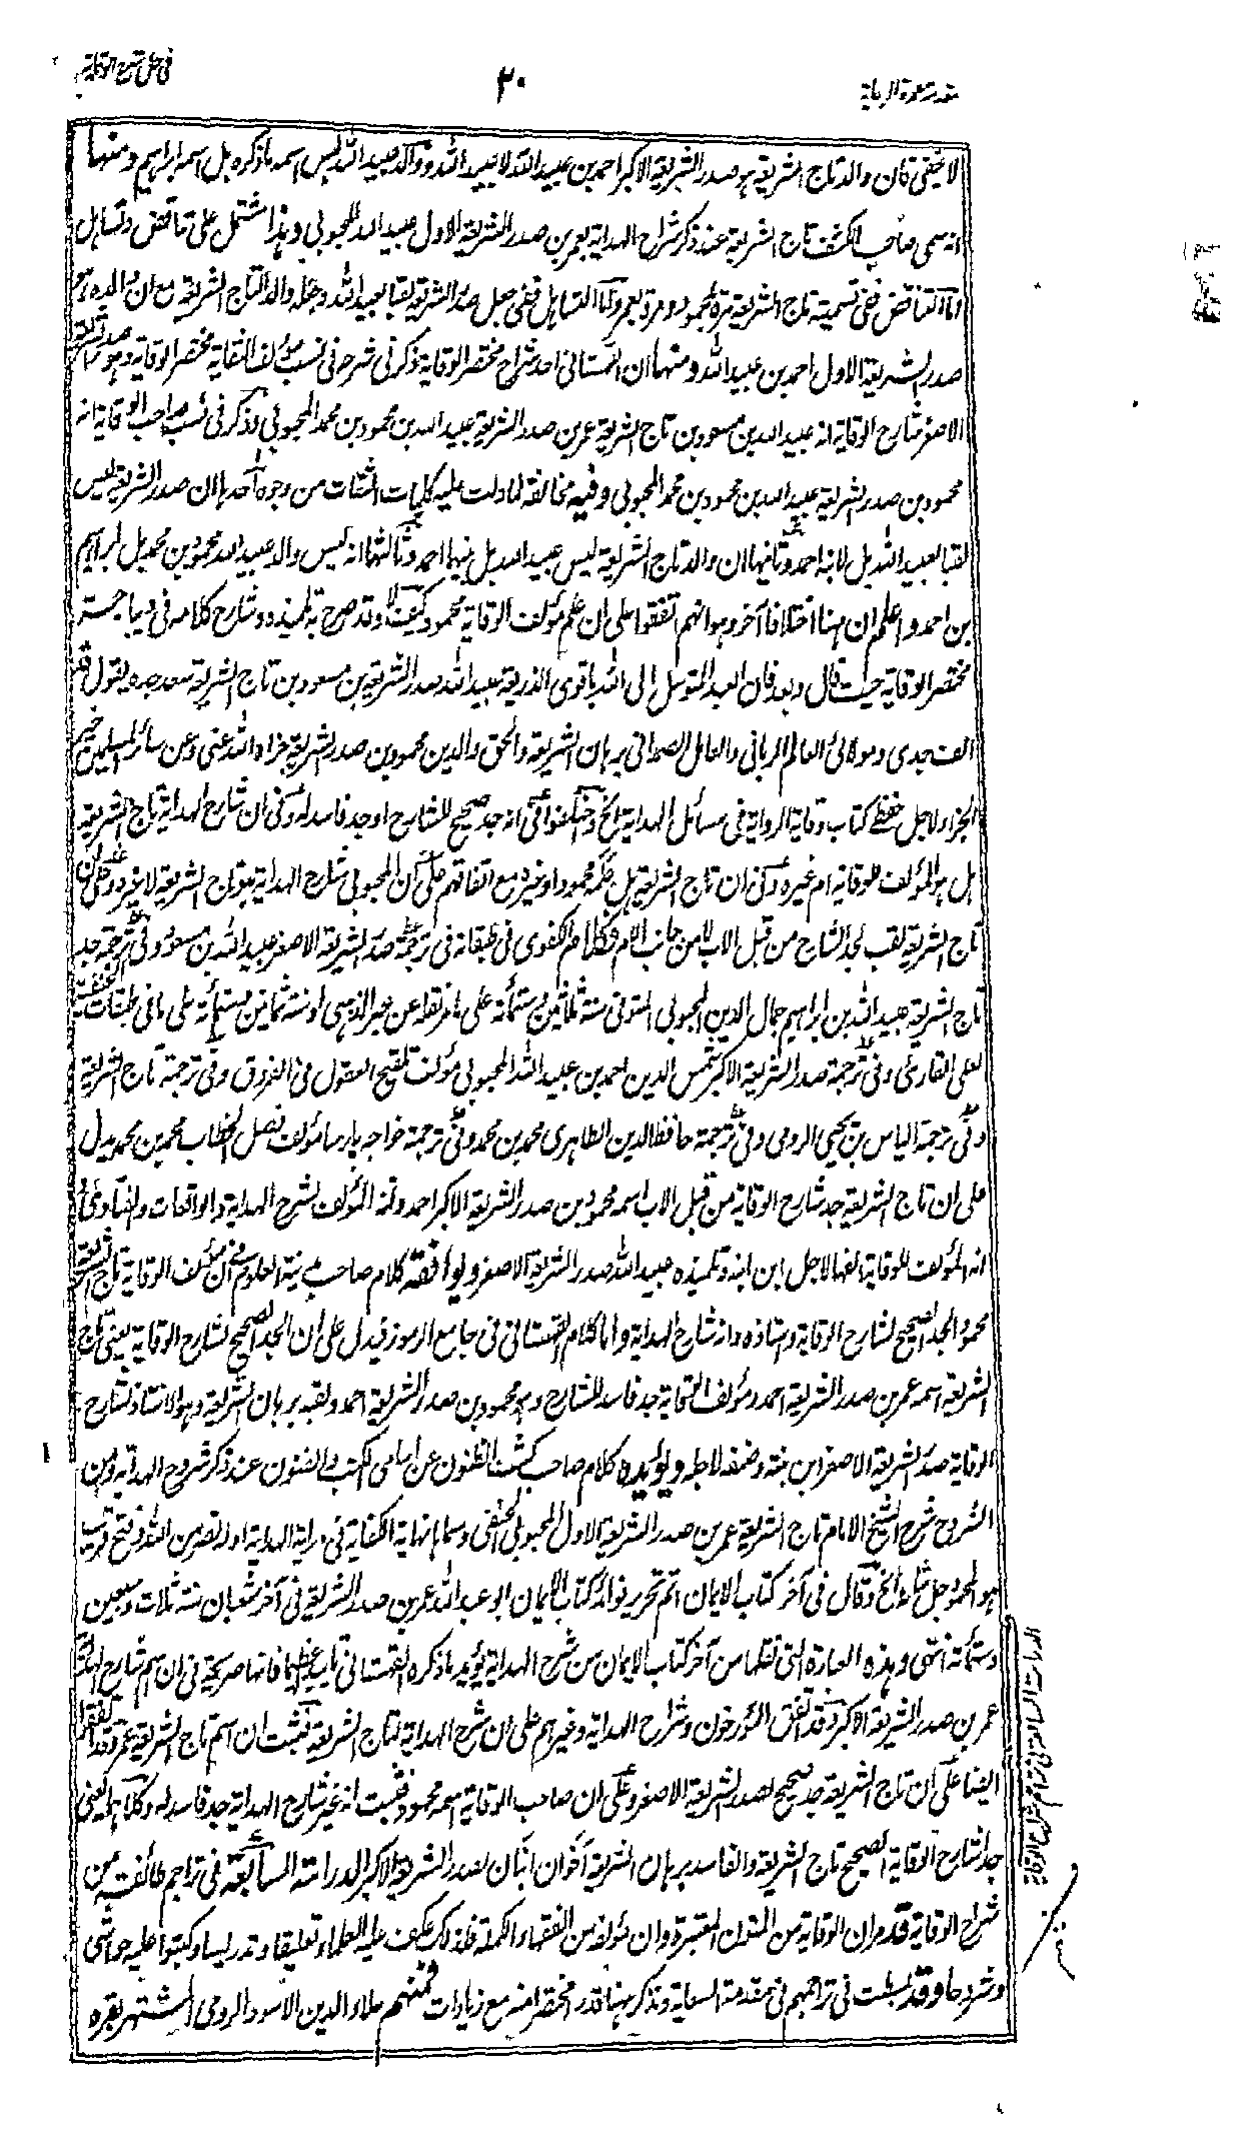 مقدمة عمدة الرعاية ٢٠ فی حل شرح الوقایة
لا يخفى فان والد تاج الشريعة هو صدر الشريعة الاكبر احمد بن عبيد الله لا عبيد الله ووالد عبيد الله ليس اسمه ما ذكره بل اسمه ابراهيم ومنها
انه سمى صاحب الكشف تاج الشريعة عند ذكر شراح الهداية بعمر بن صدر الشريعة الاول عبيد الله المحبوبي وهذا مشتمل على تناقض وتساهل
اما التناقض ففي تسمية تاج الشريعة مرة بمحمود ومرة بعمر واما التساهل ففي جعل صدر الشريعة لقبا لعبيد الله وجعله والد التاج الشريعة مع ان والده هو
صدر الشريعة الاول احمد بن عبيد الله ومنها ان القهستاني احد شراح مختصر الوقاية ذكر في شرحه في نسب مؤلف النقاية مختصر الوقاية وهو صدر الشريعة
الاصغر شارح الوقاية انه عبيد الله بن مسعود بن تاج الشريعة عمر بن صدر الشريعة عبيد الله بن محمود بن محمد المحبوبي وذكر في نسب صاحب الوقاية انه
محمود بن صدر الشريعة عبيد الله بن محمود بن محمد المحبوبي وفيه مخالفة لما دلت عليه كلمات الثقات من وجوه احدها ان صدر الشريعة ليس
لقبا لعبيد الله بل لابنه احمد وثانيها ان والد تاج الشريعة ليس عبيد الله بل بينهما احمد وثالثها انه ليس والد عبيد الله محمود بن محمد بل ابراهيم
بن احمد واعلم ان ههنا اختلافا آخر وهو انهم اتفقوا على ان علم مؤلف الوقاية محمود كيف لا وقد صرح به تلميذه وشارح كلامه في ديباجة
مختصر الوقاية حيث قال وبعد فان العبد المتوسل الى الله باقوى الذريعة عبيد الله صدر الشريعة بن مسعود بن تاج الشريعة سعد جده يقول قد
الف جدي ومولائي العالم الرباني والعامل الصمداني برهان الشريعة والحق والدين محمود بن صدر الشريعة جزاه الله عني وعن سائر المسلمين خير
الجزاء لاجل حفظي كتاب وقاية الرواية في مسائل الهداية الخ واختلفوا في انه جد صحيح للشارح او جد فاسد له وفي ان شارح الهداية تاج الشريعة
هل هو المؤلف للوقاية ام غيره وفي ان تاج الشريعة هل علمه محمود او غيره مع اتفاقهم على ان المحبوبي شارح الهداية هو تاج الشريعة لا غيره وعلى ان
تاج الشريعة لقب لجد الشارح من قبل الاب لا من جانب الام فكلام الكفوي في طبقاته في ترجمة صدر الشريعة الاصغر عبيد الله بن مسعود وفي ترجمة جد
تاج الشريعة عبيد الله بن ابراهيم جمال الدين المحبوبي المتوفى سنة ثلاثين وستمائة على ما مر نقله عن عبر الذهبي او سنة ثمانين وستمائة على ما في طبقات الحنفية
لعلي القاري وفي ترجمة صدر الشريعة الاكبر شمس الدين احمد بن عبيد الله المحبوبي مؤلف تلقيح العقول في الفروق وفي ترجمة تاج الشريعة
وفي ترجمة الياس بن يحيى الرومي وفي ترجمة حافظ الدين الطاهري محمد بن محمد وفي ترجمة خواجه پارسا مؤلف فصل الخطاب محمد بن محمد يدل
على ان تاج الشريعة جد شارح الوقاية من قبل الاب اسمه محمود بن صدر الشريعة الاكبر احمد وانه المؤلف لشرح الهداية والواقعات والفتاوى و
انه المؤلف للوقاية الفها لاجل ابن ابنه وتلميذه عبيد الله صدر الشريعة الاصغر ويوافقه كلام صاحب مدينة العلوم من ان مؤلف الوقاية تاج الشريعة
محمود الجد الصحيح لشارح الوقاية واستاذه وانه شارح الهداية واما كلام القهستاني في جامع الرموز فيدل على ان الجد الصحيح لشارح الوقاية يعني تاج
الشريعة اسمه عمر بن صدر الشريعة احمد ومؤلف الوقاية جد فاسد للشارح وهو محمود بن صدر الشريعة احمد ولقبه برهان الشريعة وهو الاستاذ لشارح
الوقاية صدر الشريعة الاصغر ابن بنته وصنفه لاجله ويؤيده كلام صاحب كشف الظنون عن اسامي الكتب والفنون عند ذكر شروح الهداية ومن
الشروح شرح الشيخ الامام تاج الشريعة عمر بن صدر الشريعة الاول المحبوبي الحنفي وسماه نهاية الكفاية في دراية الهداية اوله نصر من الله وفتح قريب
هو المحمود جل ثناؤه الخ وقال في آخر كتاب الايمان اتم تحرير فوائد كتاب الايمان ابو عبد الله عمر بن صدر الشريعة في آخر شعبان سنة ثلاث وسبعين
وستمائة انتهى وهذه العبارة التي نقلها من آخر كتاب الايمان من شرح الهداية يؤيد ما ذكره القهستاني تاييدا عظيما فانها صريحة في ان اسم شارح الهداية
عمر بن صدر الشريعة الاكبر وقد اتفق المؤرخون وشراح الهداية وغيرهم على ان شرح الهداية لتاج الشريعة فثبت ان اسم تاج الشريعة عمر وقد اتفقوا
ايضا على ان تاج الشريعة جد صحيح لصدر الشريعة الاصغر وعلى ان صاحب الوقاية اسمه محمود فثبت انه غير شارح الهداية جد فاسد له وكلاهما يعني
جد شارح الوقاية الصحيح تاج الشريعة والفاسد برهان الشريعة اخوان ابنان لصدر الشريعة الاكبر الدراسة السابعة في تراجم طائفة من
شراح الوقاية قد مر ان الوقاية من المتون المعتبرة وان مؤلفه من الفقهاء الكملة فلذلك عكف عليه العلماء تعليقا وتدريسا وكتبوا عليه حواشي
وشروحا وقد بسطت في تراجمهم في مقدمة السعاية ونذكر ههنا قدرا مختصرا منه مع زيادات فمنهم علاء الدين الاسود الرومي المشتهر بقره